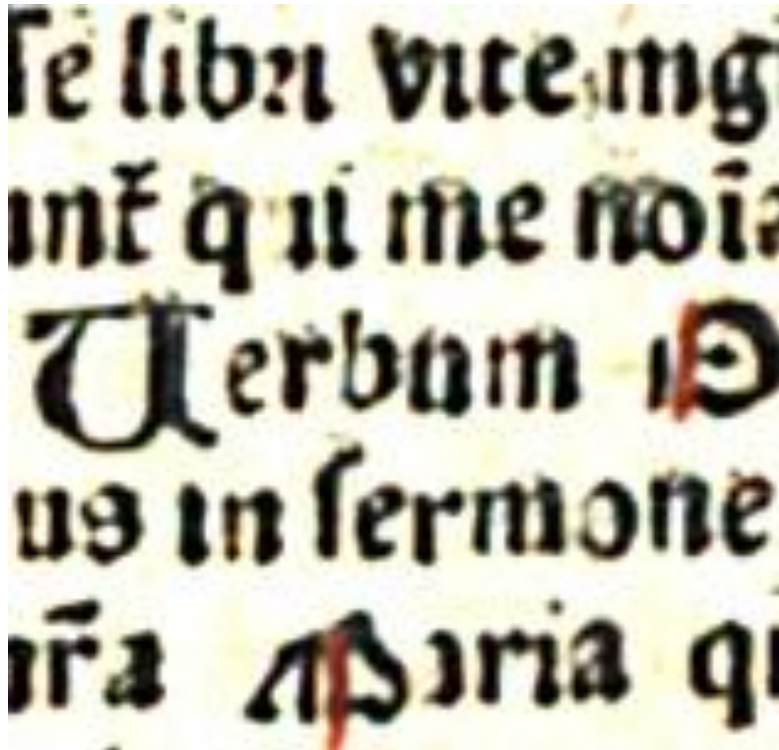 ſe libꝛi vite ing
unt᷒ qui me noīa
Uerbum
us in ſermone
r̄a Maria qu